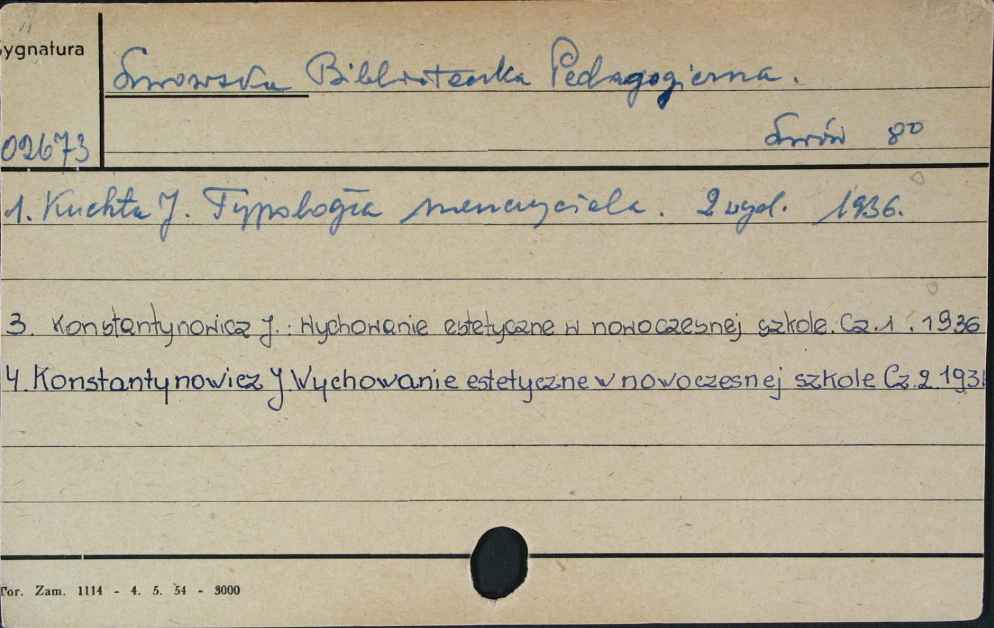 Sygnatura
Lwowska Biblioteczka Pedagogiczna.
Lwów 8º
02673
1. Kuchta J. Typologia nauczyciela. 2 wyd. 1936.
3. Konstantynowicz J. : Wychowanie estetyczne w nowoczesnej szkole. Cz. 1 . 1936
4. Konstantynowicz J. Wychowanie estetyczne w nowoczesnej szkole Cz. 2 193
Tor. Zam. 1114 - 4. 5. 54 - 3000